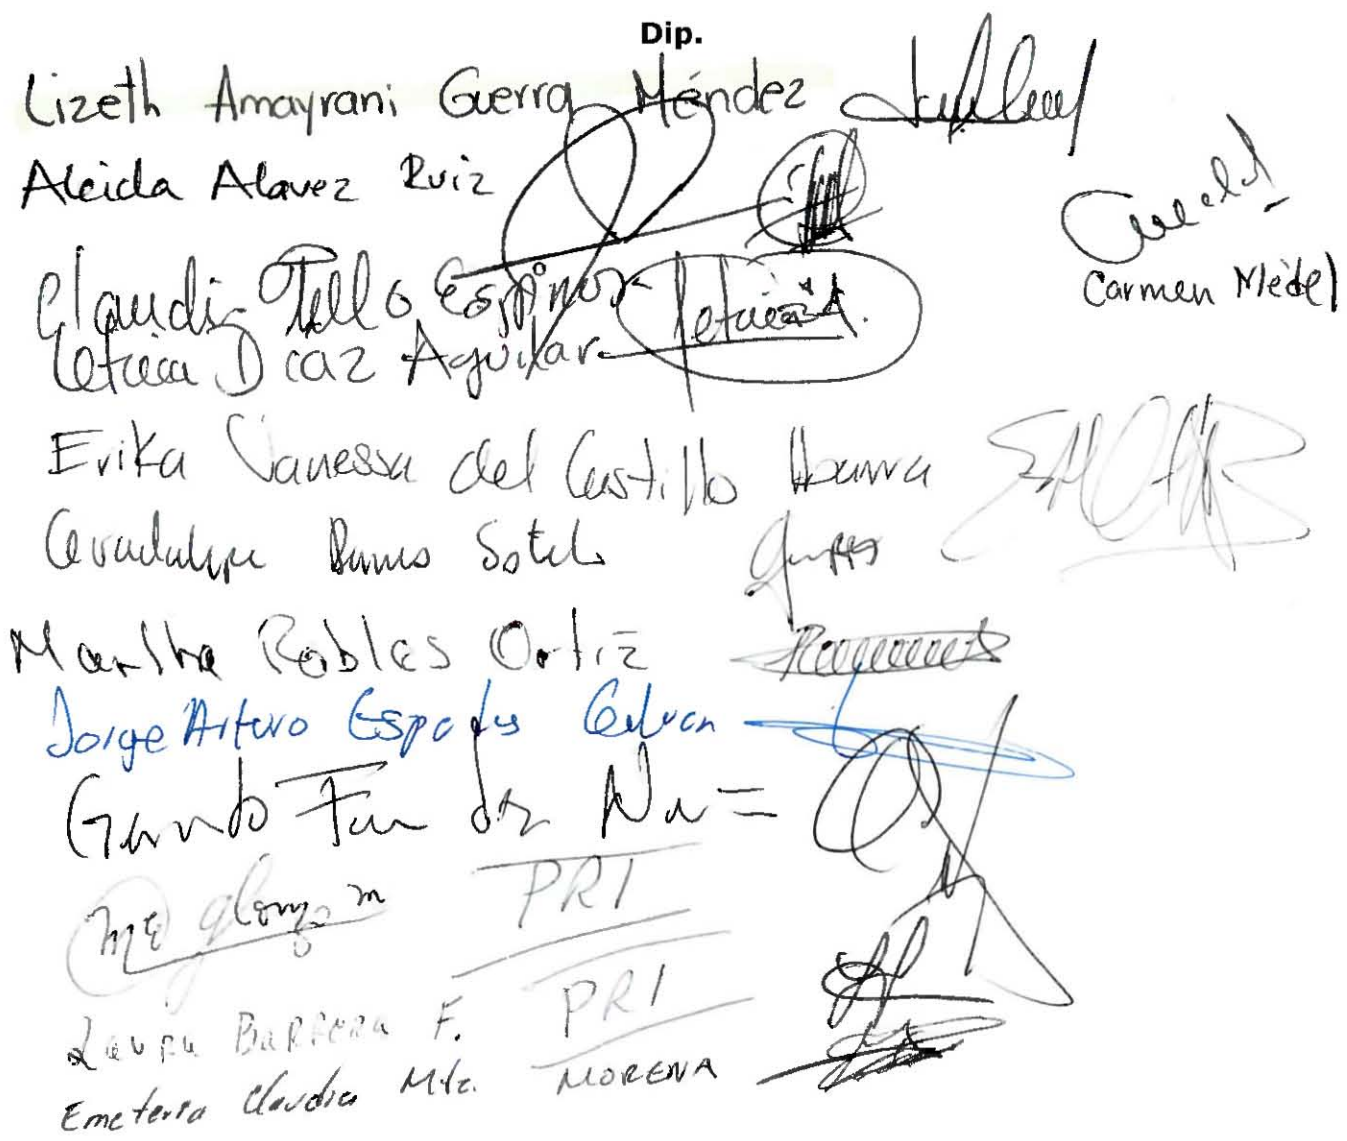 Dip.
Lizeth Amayrani Guerra Méndez
Aleida Alavez Ruiz
Carmen Medel
Claudia Tello Espinosa
Leticia Diaz Aguilar
Erika Vanessa del Castillo Ibarra
Guadalupe Ramos Sotelo
Martha Robles Ortiz
Jorge Arturo Espadas Galvan
PRI
Laura Barrera F. PRI
Emeteria Claudia Mtz. MORENA